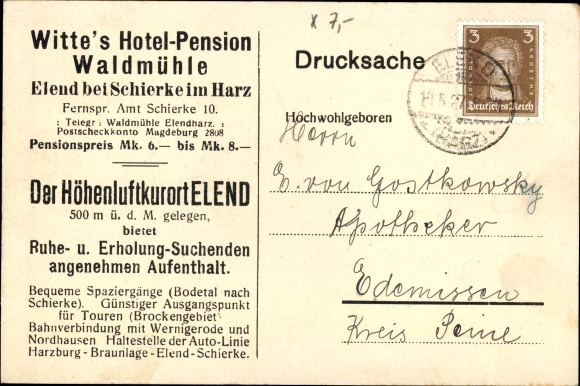 x 7,-
Witte's Hotel-Pension
Waldmühle
Elend bei Schierke im Harz
Fernspr. Amt Schierke 10.
: Telegr: Waldmühle Elendharz. :
Postscheckkonto Magdeburg 2808
Pensionspreis Mk. 6.— bis Mk. 8.—
Der Höhenluftkurort ELEND
500 m ü. d. M. gelegen,
bietet
Ruhe- u. Erholung-Suchenden
angenehmen Aufenthalt.
Bequeme Spaziergänge (Bodetal nach
Schierke). Günstiger Ausgangspunkt
für Touren (Brockengebiet)
Bahnverbindung mit Wernigerode und
Nordhausen Haltestelle der Auto-Linie
Harzburg - Braunlage - Elend - Schierke.
Drucksache
3 3
Deutsches Reich
ELEND
(HARZ)
Hochwohlgeboren
Herrn
E. von Gostkowsky
Apotheker
Edemissen
Kreis Peine